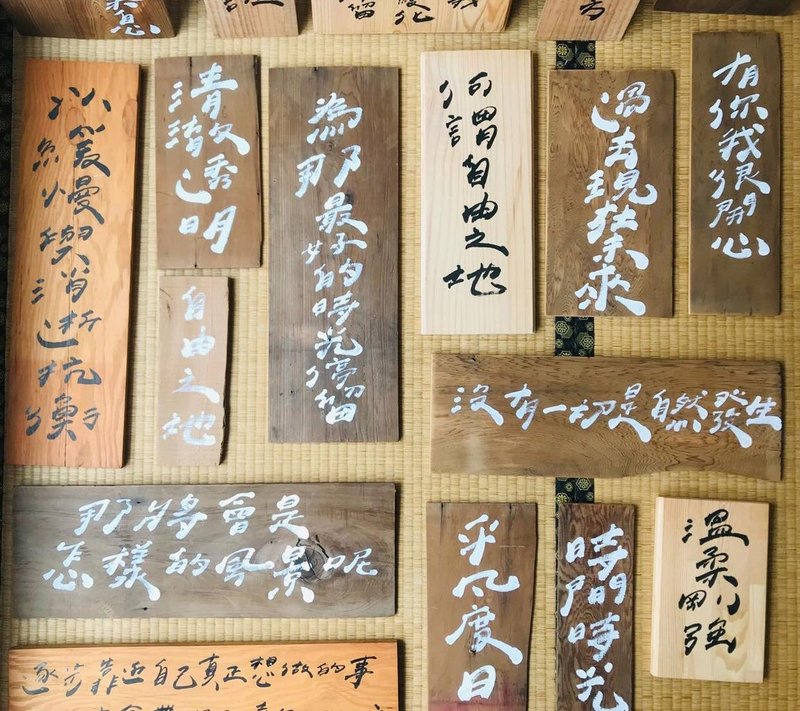 以緩慢與消逝抗衡
清澈透明
為那最好的時光停留
何謂自由之地
過去現在未來
有你我很開心
自由之地
沒有一切是自然發生
那將會是
怎樣的風景呢
平凡度日
時間時光
溫柔剛強
逐步靠近自己真正想做的事